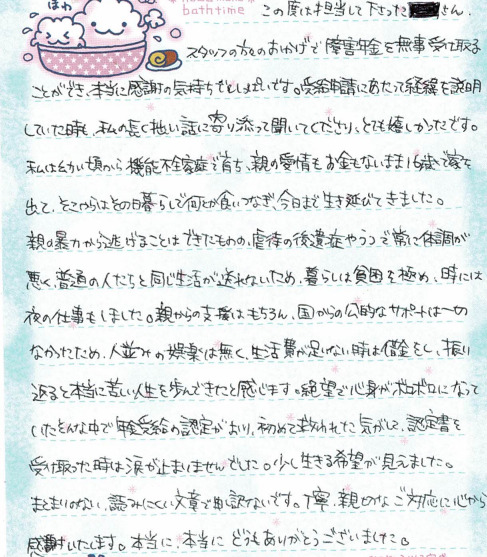 ほわ
bath time この度は担当して下さった さん、
スタッフの方々のおかげで障害年金を無事受け取る
ことができ、本当に感謝の気持ちでいっぱいです。受給申請にあたって経緯を説明
していた時も、私の長く拙い話に寄り添って聞いてくださり、とても嬉しかったです。
私は幼い頃から機能不全家庭で育ち、親の愛情もお金もないまま16歳で家を
出て、そこからはその日暮らしで何とか食いつなぎ、今日まで生き延びてきました。
親の暴力から逃げることはできたものの、虐待の後遺症やうつで常に体調が
悪く、普通の人たちと同じ生活が送れないため、暮らしは貧困を極め、時には
夜の仕事もしました。親からの支援はもちろん、国からの公的なサポートは一切
なかったため、人並みの娯楽は無く、生活費が足りない時は借金をし、振り
返ると本当に苦しい人生を歩んできたと感じます。絶望で心身がボロボロになって
いたそんな中で年金受給の認定がおり、初めて救われた気がして、認定書を
受け取った時は涙が止まりませんでした。少し生きる希望が見えました。
まとまりのない、読みにくい文章で申し訳ないです。丁寧、親切なご対応に心から
感謝いたします。本当に、本当に どうもありがとうございました。